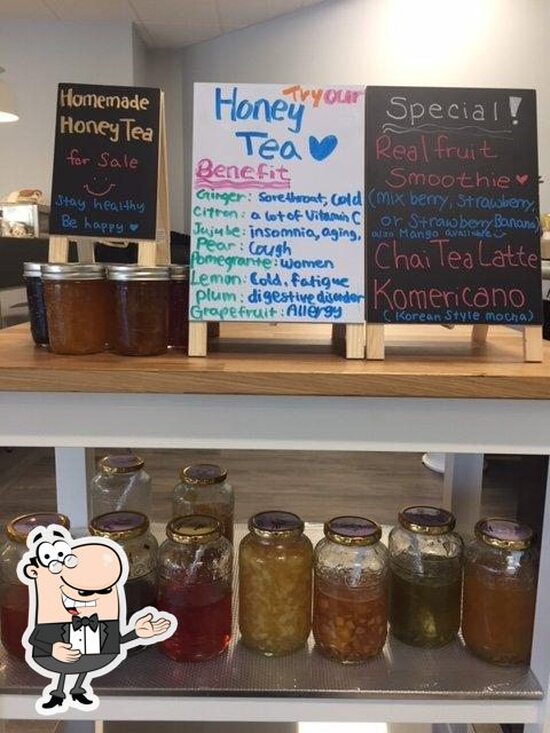 Homemade
Honey Tea
for Sale
Stay healthy
Be happy
Try our
Honey
Tea
Benefit
Ginger: Sore throat, Cold
Citron: a lot of Vitamin C
Jujube: insomnia, aging,
Pear: Cough
Pomegrante: women
Lemon: Cold, fatigue
Plum: digestive disorder
Grapefruit: Allergy
Special!
Real fruit
Smoothie
(mix berry, Strawberry,
or Strawberry Banana)
also Mango available
Chai Tea Latte
Komericano
(Korean Style mocha)